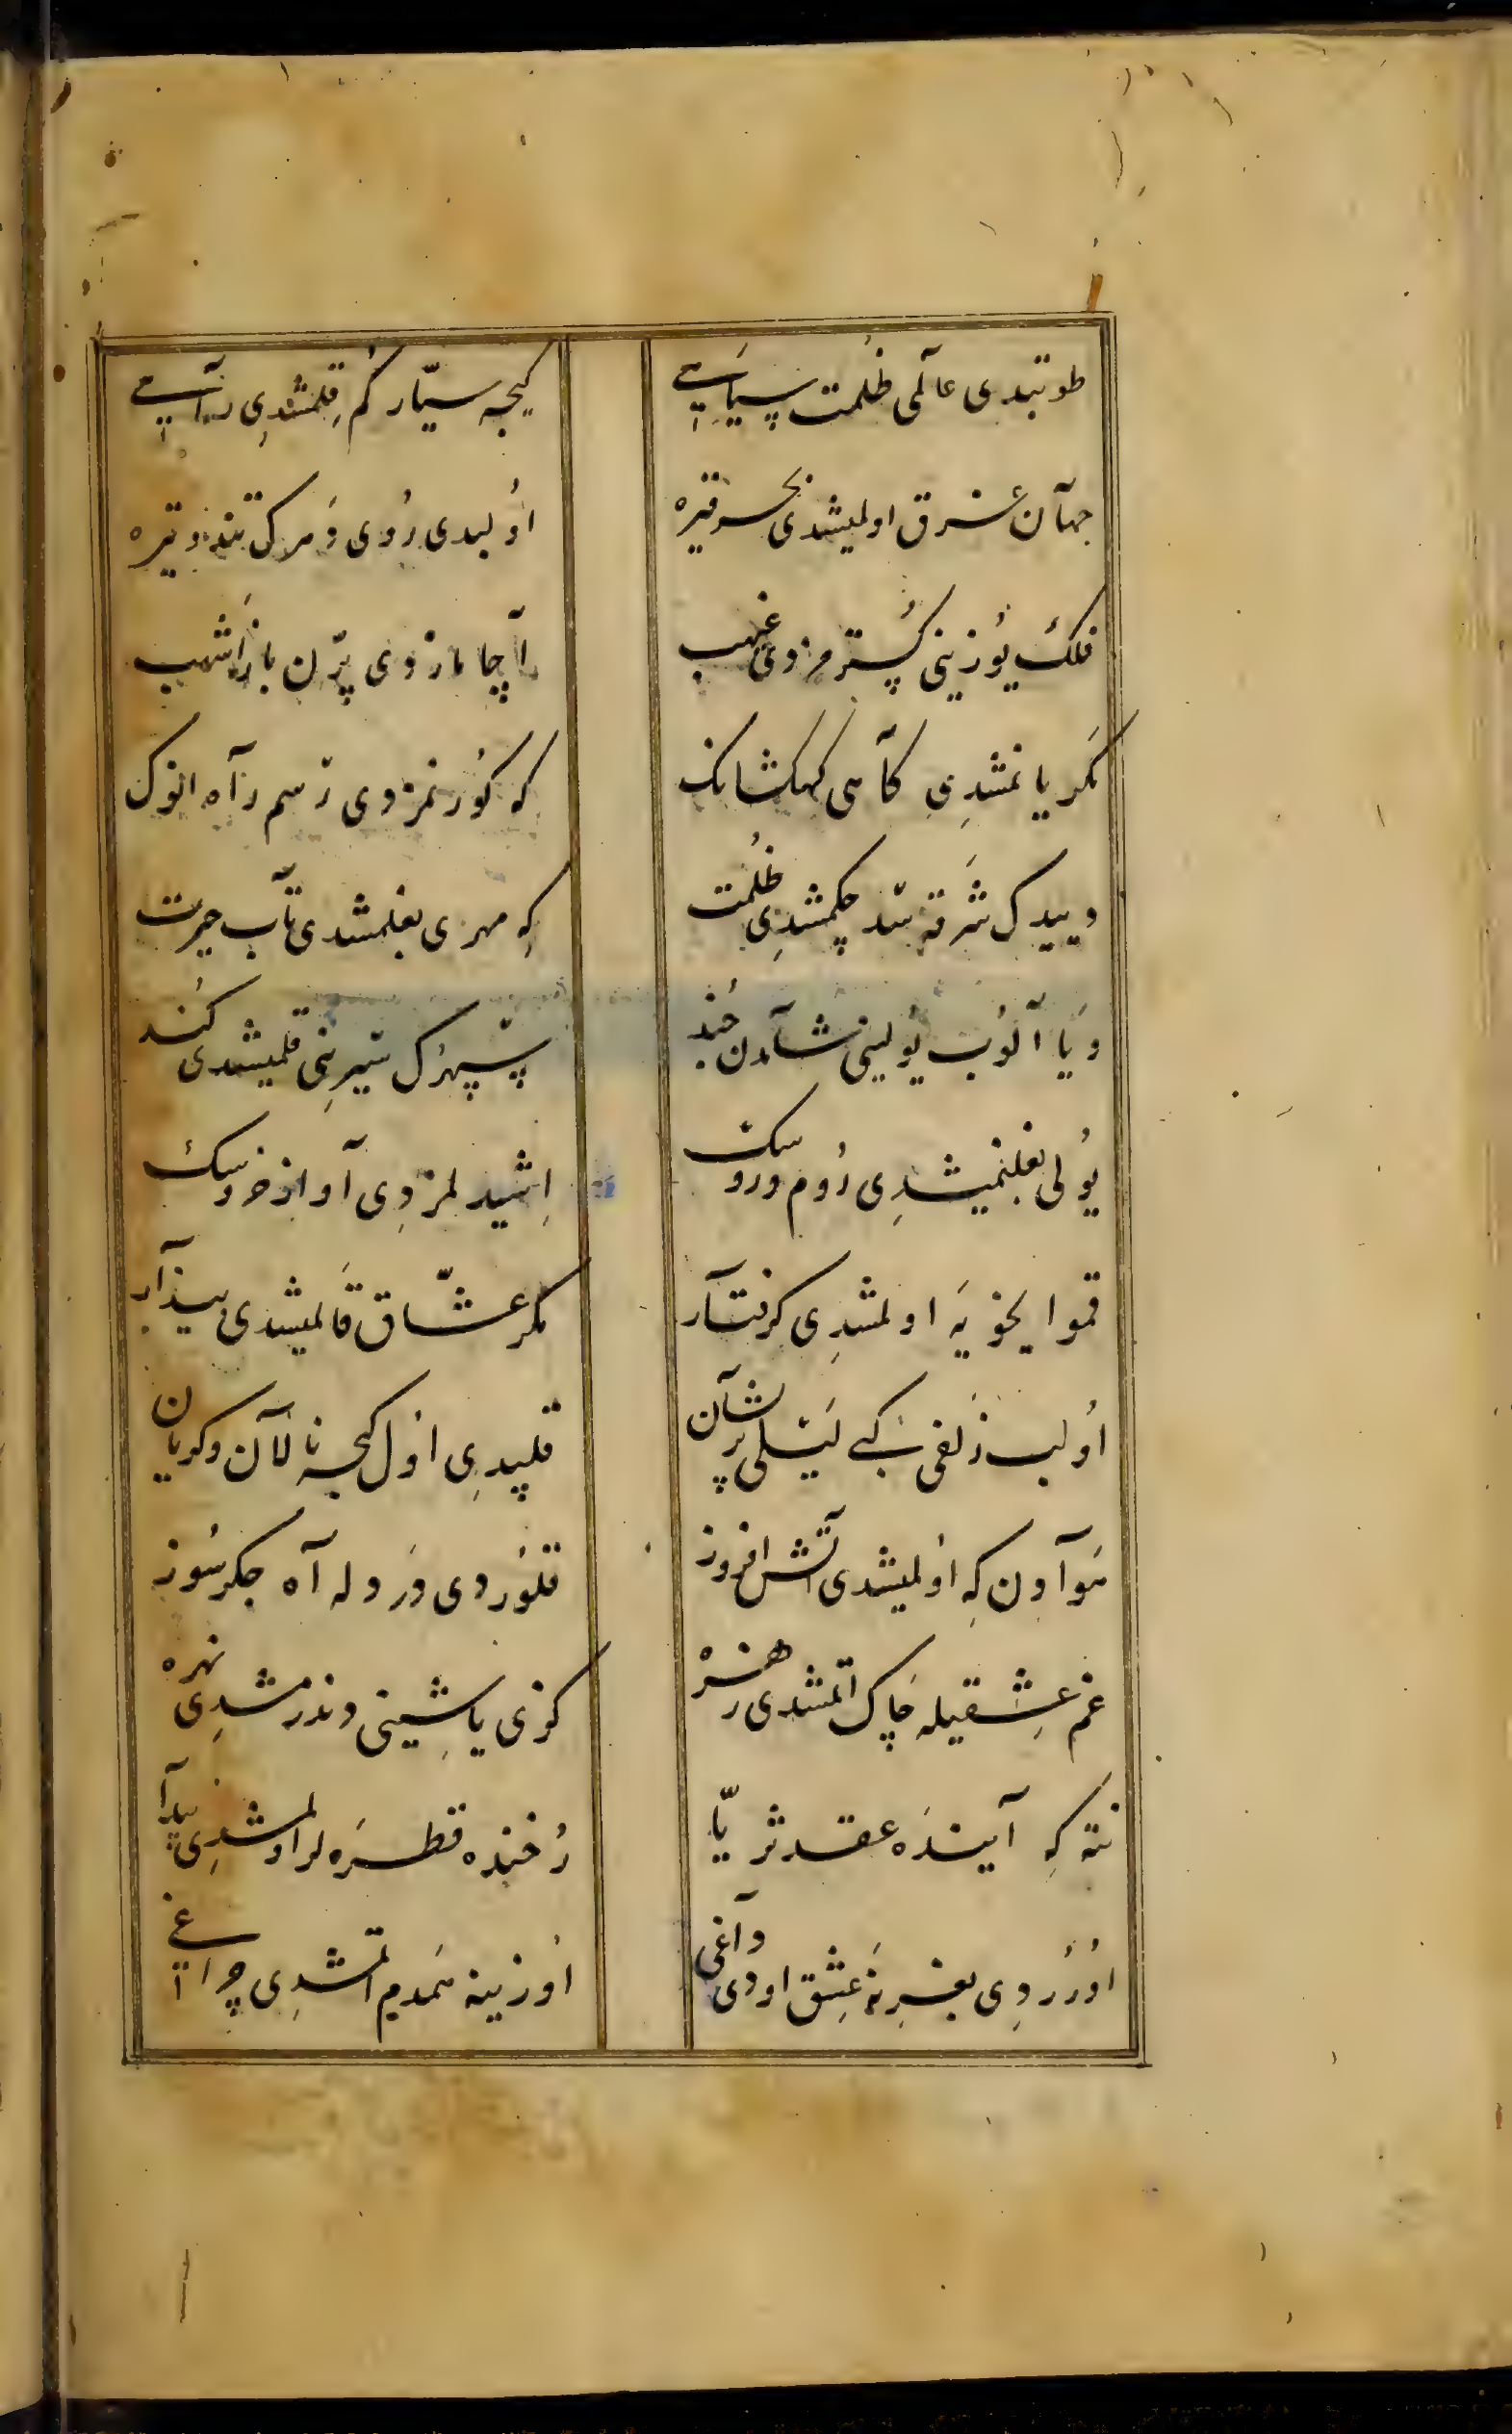 طوتبدی عالمی ظلمت سپاهی    کیجه سیّار کُم قلمشدی راهی
جهآن غرق اولمیشدی بحر قیره    اُولبدی رُوی وَمرک تند و تیره
فلک یُوزینی کُسترمزدی غیهب    آچامازدی پرّن باز اَشهب
مکر یانمشدِی کآهی کهکشانک    که کُورنمزدی رَسم رَآه انوک
دییدک شَرقه سّد چکمشدِی ظُلمت    کِه مهری بغلمشدی تآب حیرت
وَیا آلوُب یُولینی شآمدن جُند    سپهرُک سَیرِنی قلمیشدی کُند
یُولی بغلنمیشدِی رُوم و روسک    اِشیدلمزدِی آواز خروسک
قمو ایخویَه اولمشدِی کرفتآر    مکر عشّاق قَالمیشدی بیدآر
اُولب زُلفی کبی لَیلی پرشآن    قلپدِی اوُل کیجه نَالآن و کریان
هَوآ دن کِه اوُلمیشدی آتش افروز    قلوُردی دَردله آه جکرسُوز
غم عِشقیله چَاک اتمشدی زهره    کزی یاشِینی دندرمشدِی نهره
نته کِه آیینَده عقد ثریّا    رُخنده قطرَه لر اولمشدِی پیدآ
اوُرُردِی بغرِنه عِشق اودی داغی    اُوزینه هَمدم اتمشدِی چراغی